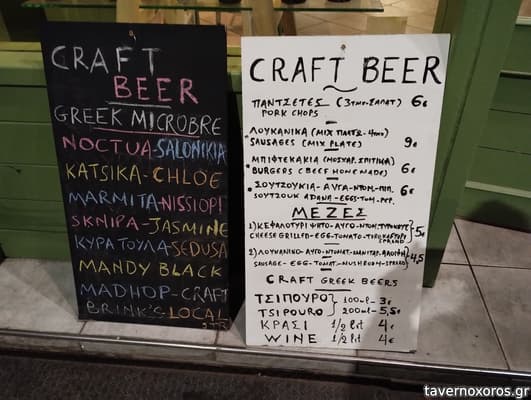 CRAFT
BEER
GREEK MICROBRE
NOCTUA-SALONIKIA
KATSIKA-CHLOE
MARMITA-NISSIOPI
SKNIPA-JASMINE
KYPATOYΛA-SEDUSA
MANDY BLACK
MADHOP-CRAFT
BRINK'S LOCAL
CRAFT BEER
ΠΑΝΤΣΕΤΕΣ (3ΤΜΧ-ΣΑΛΑΤ) 6€
PORK CHOPS
ΛΟΥΚΑΝΙΚΑ (MIX ΠΙΑΤΟ-4ΤΜΧ)
SAUSAGES (MIX PLATE) 9€
ΜΠΙΦΤΕΚΑΚΙΑ (ΜΟΣΧΑΡ. ΣΠΙΤΙΚΑ)
BURGERS (BEEF HOMENADE) 6€
ΣΟΥΤΖΟΥΚΙΑ-ΑΥΓΑ-ΝΤΟΜ-ΠΙΠ.
SOYTZOUK ADANA-EGGS-TOM-PEP. 6€
ΜΕΖΕΣ
1) ΚΕΦΑΛΟΤΥΡΙ ΨΗΤΟ-ΑΥΓΟ-ΝΤΟΜ-
CHEESE GRILLED-EGG-TOMATO- SPREAD 5€
2) ΛΟΥΚΑΝΙΚΟ-ΑΥΓΟ-ΝΤΟΜΑΤ-ΜΑΝΙΤΑΡ. ΑΛΟΙΦΗ
SAUSAGE-EGG-TOMAT-MUSHROOM-SPREAD 4,5
CRAFT GREEK BEERS
ΤΣΙΠΟΥΡΟ 100ml-3€
TSIPOURO 200ml-5,5€
ΚΡΑΣΙ 1/2 lit 4€
WINE 1/2 lit 4€
tavernoxoros.gr